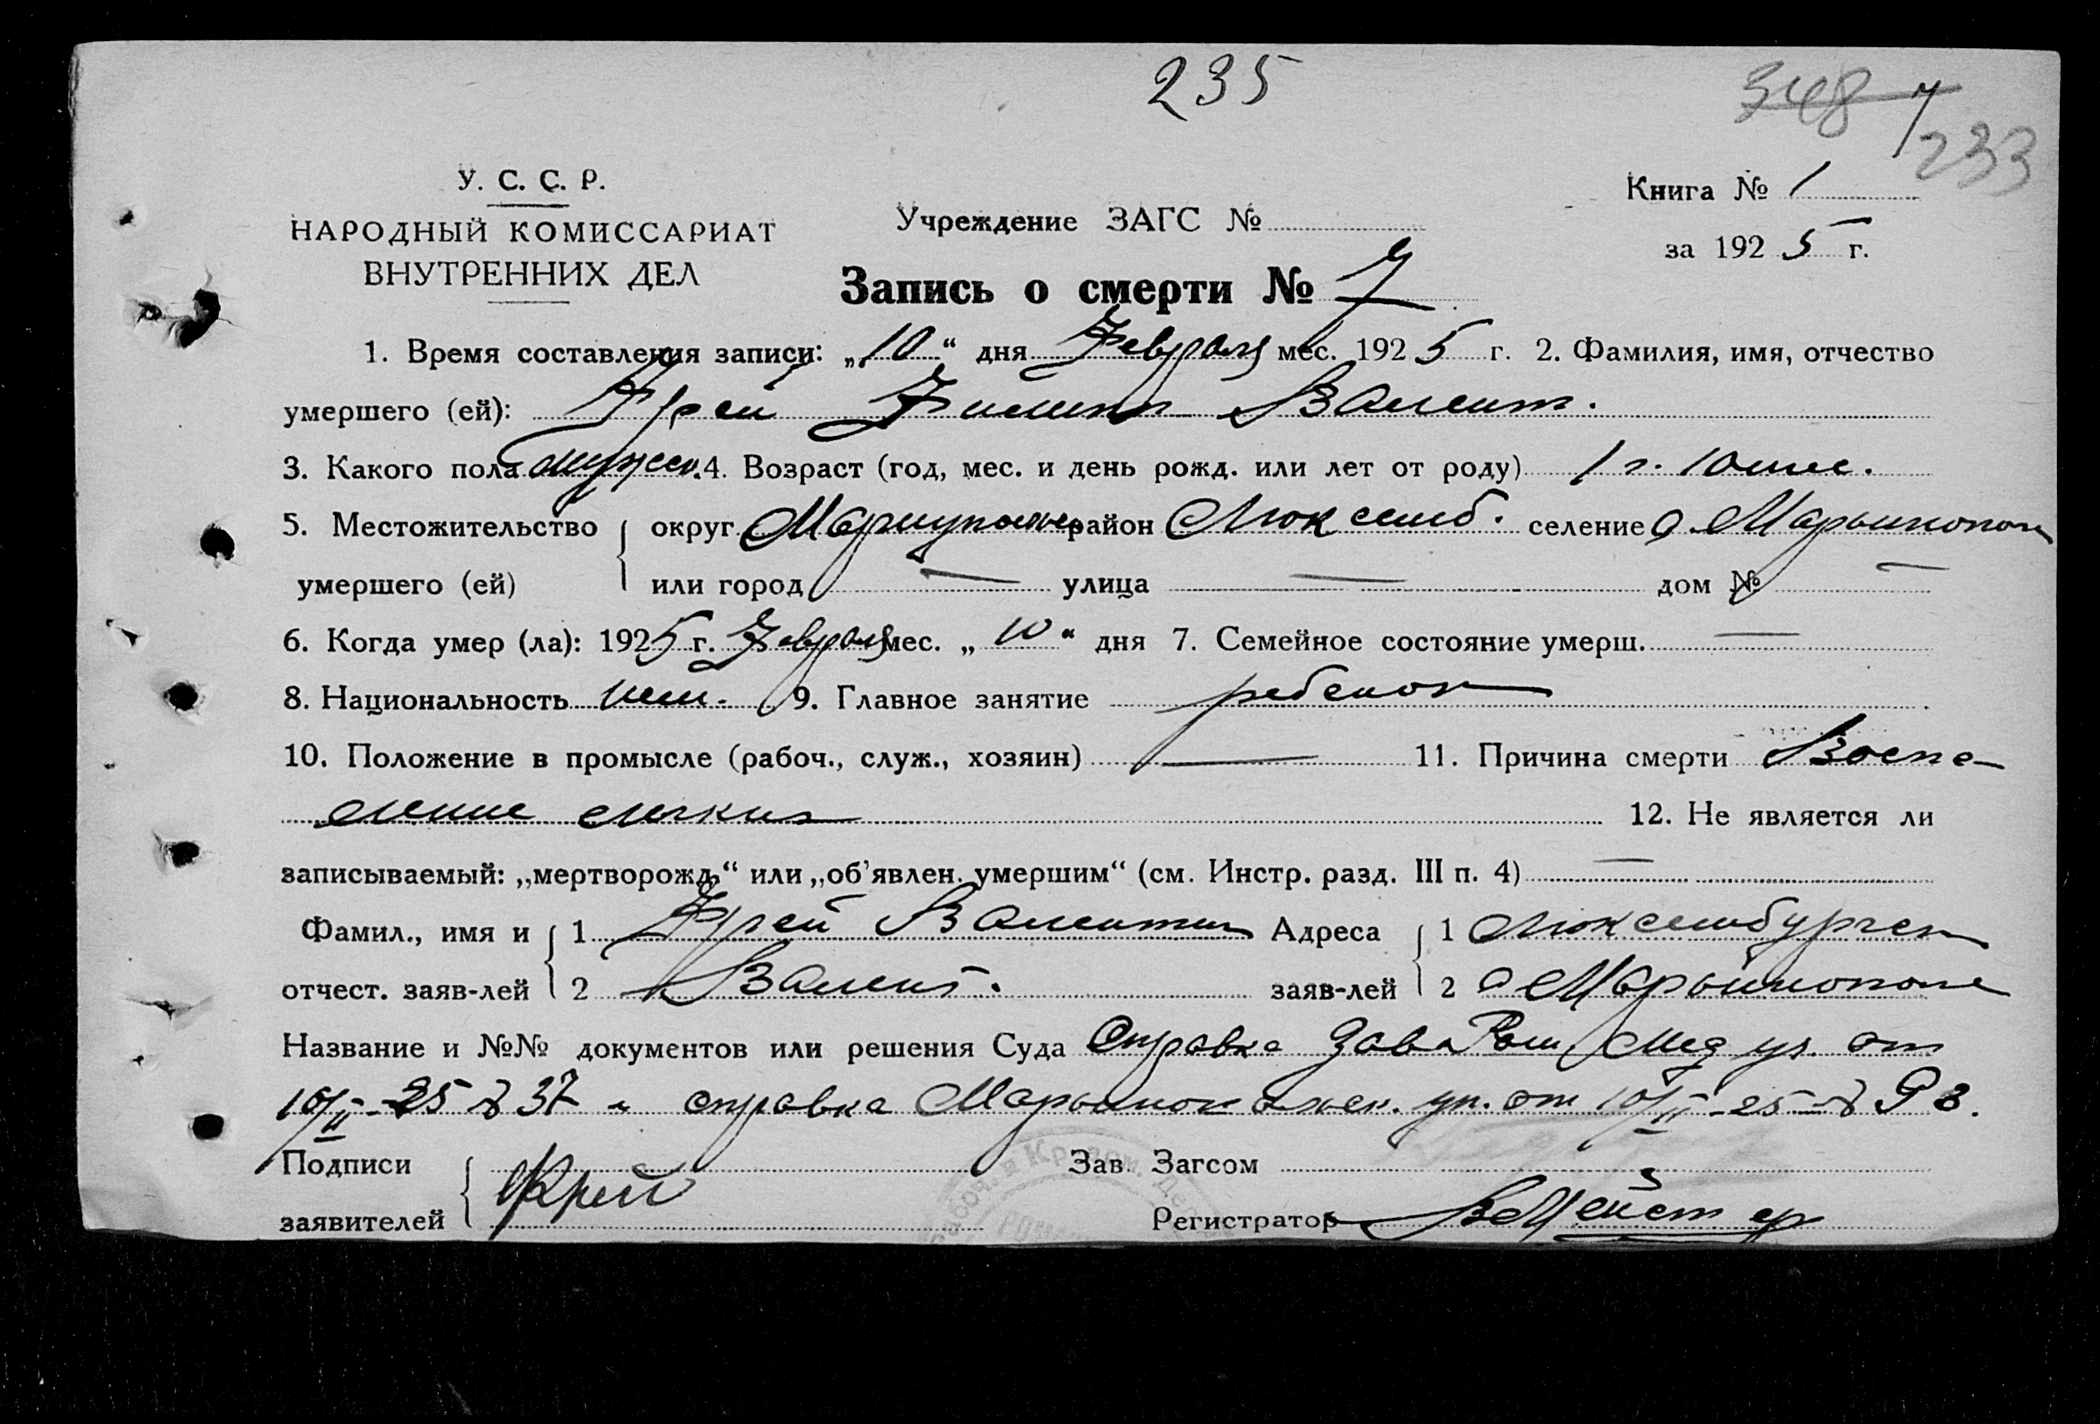 235
348 7
233
У. С. С. Р.
НАРОДНЫЙ КОМИССАРИАТ
ВНУТРЕННИХ ДЕЛ
Учреждение ЗАГС №
Книга № 1
за 1925 г.
Запись о смерти № 7
1. Время составления записи: „10“ дня Февраля мес. 1925 г. 2. Фамилия, имя, отчество
умершего (ей): Фрей Филипп Валент.
3. Какого пола мужск. 4. Возраст (год, мес. и день рожд. или лет от роду) 1 г. 10 мес.
5. Местожительство округ Мариупольс район Люксемб. селение с Марьинополь
умершего (ей) или город — улица — дом № —
6. Когда умер (ла): 1925 г. Февраля мес. „10“ дня 7. Семейное состояние умерш. —
8. Национальность нем. 9. Главное занятие ребенок
10. Положение в промысле (рабоч., служ., хозяин) — 11. Причина смерти Воспа-
ление легких 12. Не является ли
записываемый: „мертворожд.“ или „об’явлен. умершим“ (см. Инстр. разд. III п. 4) —
Фамил., имя и 1 Фрей Валентин Адреса 1 Люксембургск
отчест. заяв-лей 2 Валент. заяв-лей 2 с Марьинополе
Название и №№ документов или решения Суда Справка Зав Мед уч. от
10/II-25 № 37 и справка Марьинопольск. уп. от 10/II-25 № 93.
Подписи Зав. Загсом
заявителей Фрей Регистратор ВМейстер